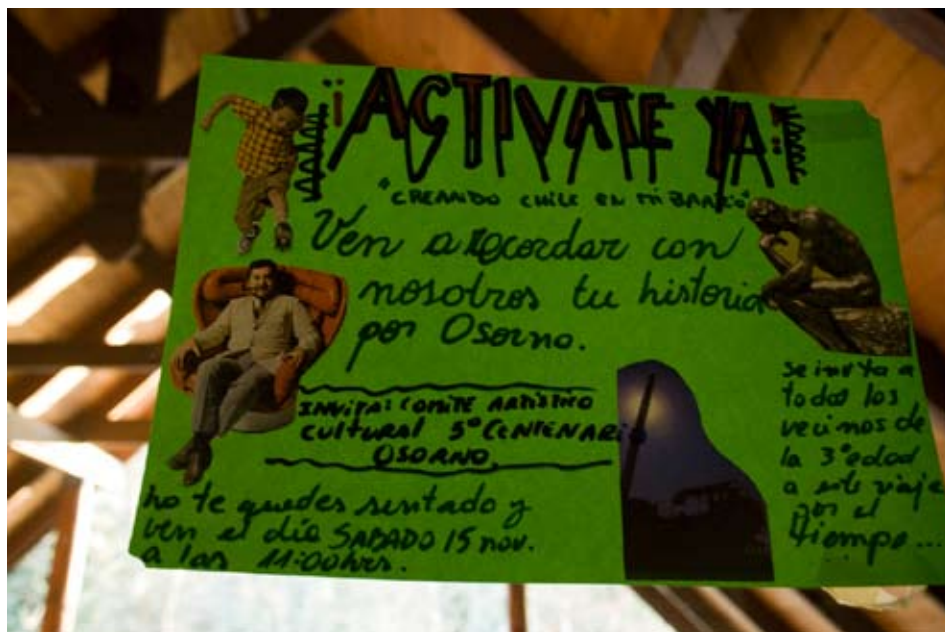 ¡ACTIVATE YA!
"CREANDO CHILE EN MI BARRIO"
Ven a recordar con
nosotros tu historia
por Osorno.
INVITA: COMITE ARTISTICO
CULTURAL 5° CENTENARI
OSORNO
no te quedes sentado y
ven el día SABADO 15 nov.
a las 11:00 hrs.
se invita a
todos los
vecinos de
la 3° edad
a este viaje
por el
tiempo...